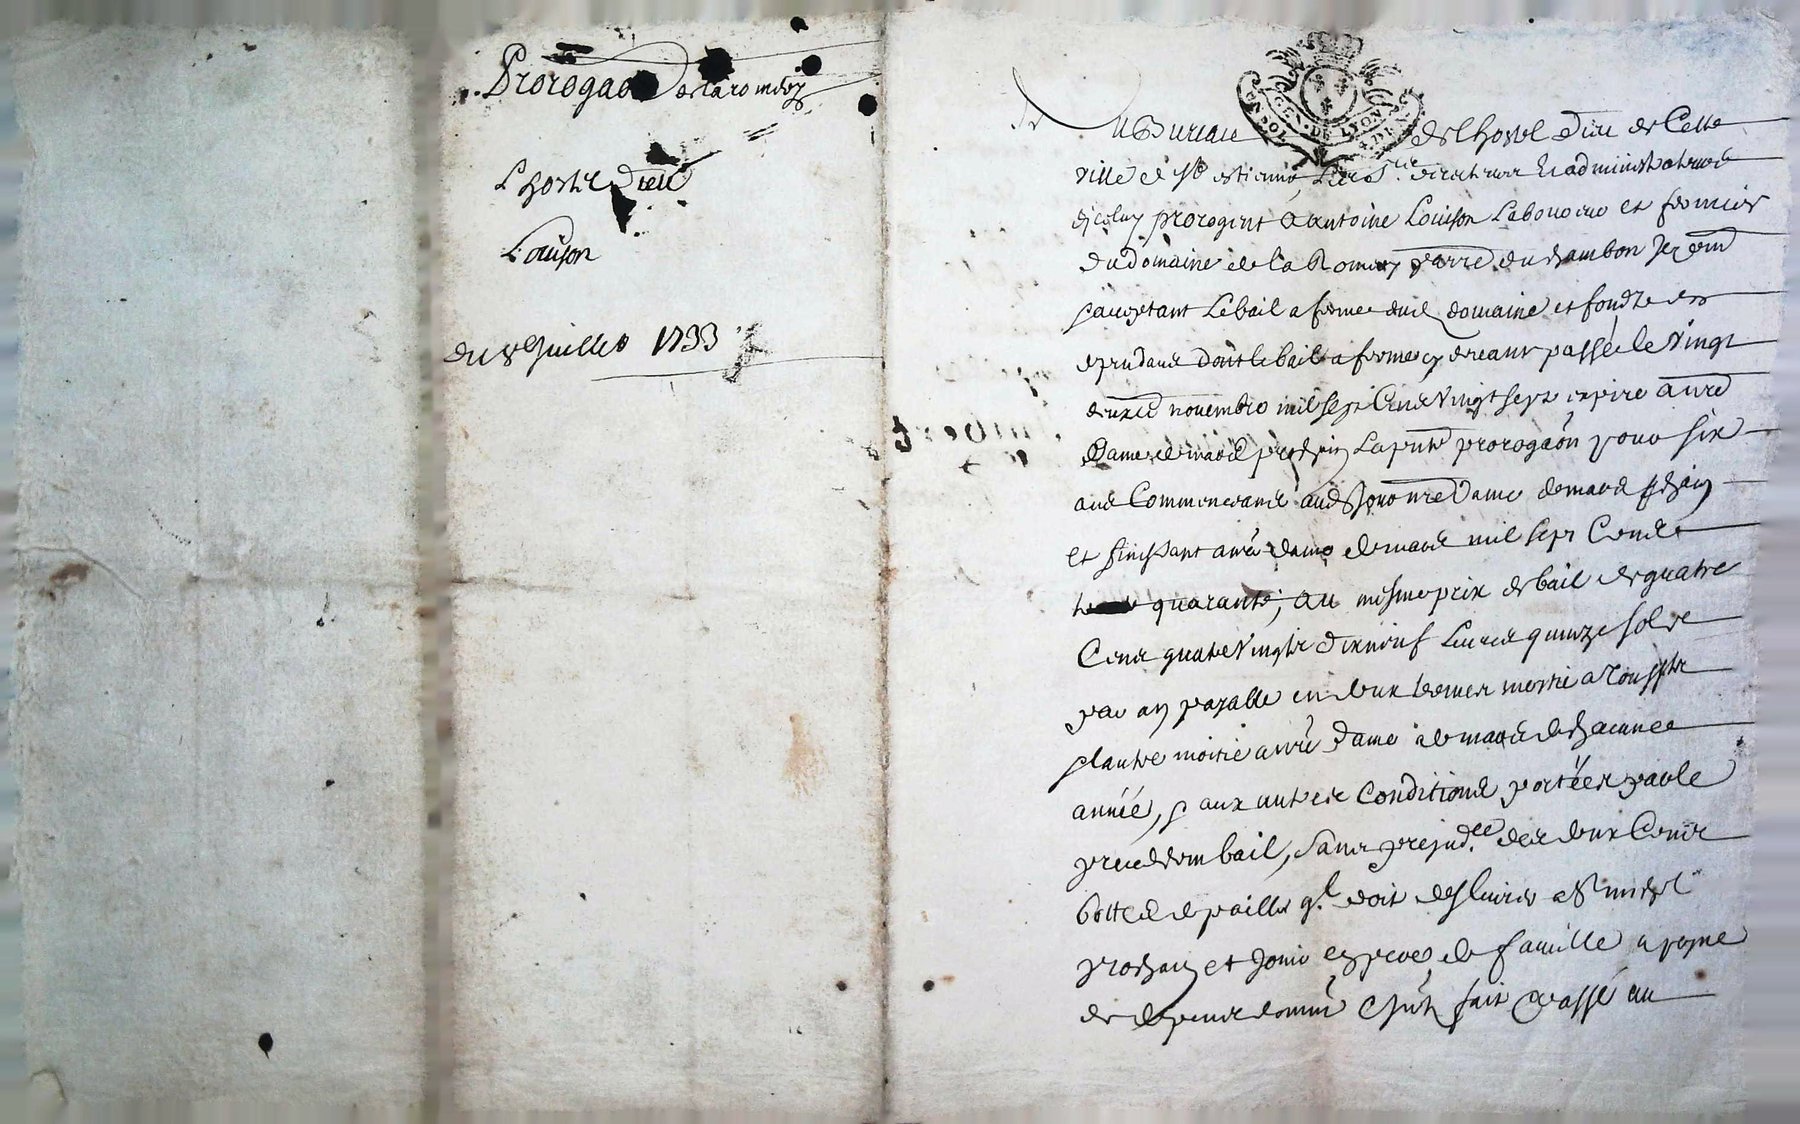 Prorogaon de la romdey
L'hostel Dieu
Louison
du 8e Juillet 1733
GEN. DE LYON
UN SOL
Au Bureau de l'hostel Dieu de Cette
ville de St estienne, Les Srs directeurs et administrateurs
diceluy prorogent a antoine Louison Laboureur et fermier
du domaine de la Romey parre du chambon
acceptant Le bail a ferme dud domaine et fonds en
dependans dont le bail a ferme cy devant passé le vingt
deuxe novembre mil sept Cens vingt sept expire a nre
Dame de mars prochain La pnte prorogaon pour six
ans Commenceans aud Jour nre Dame de mars pchain
et finissant a nre dame de mars mil sept Cens
quarante, au mesme prix de bail de quatre
Cens quatre Vingts dixneuf Livres quinze sols
par an payable en deux termes moitie a Toussts
et lautre moitie a nre Dame de mars de chacunee
année, et aux autres Conditions portées par le
precedent bail, sans prejudce des deux Cens
bottes de paille ql doit deslivrer a St michel
prochain et Jouir en pere de famille a peyne
de depens domms Ints fait et passé au